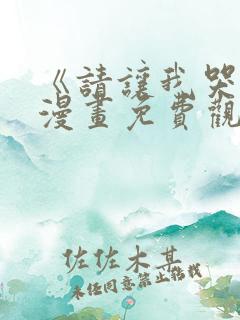 《請讓我哭
漫畫免費觀
佐佐木其
未任同意禁止轉載